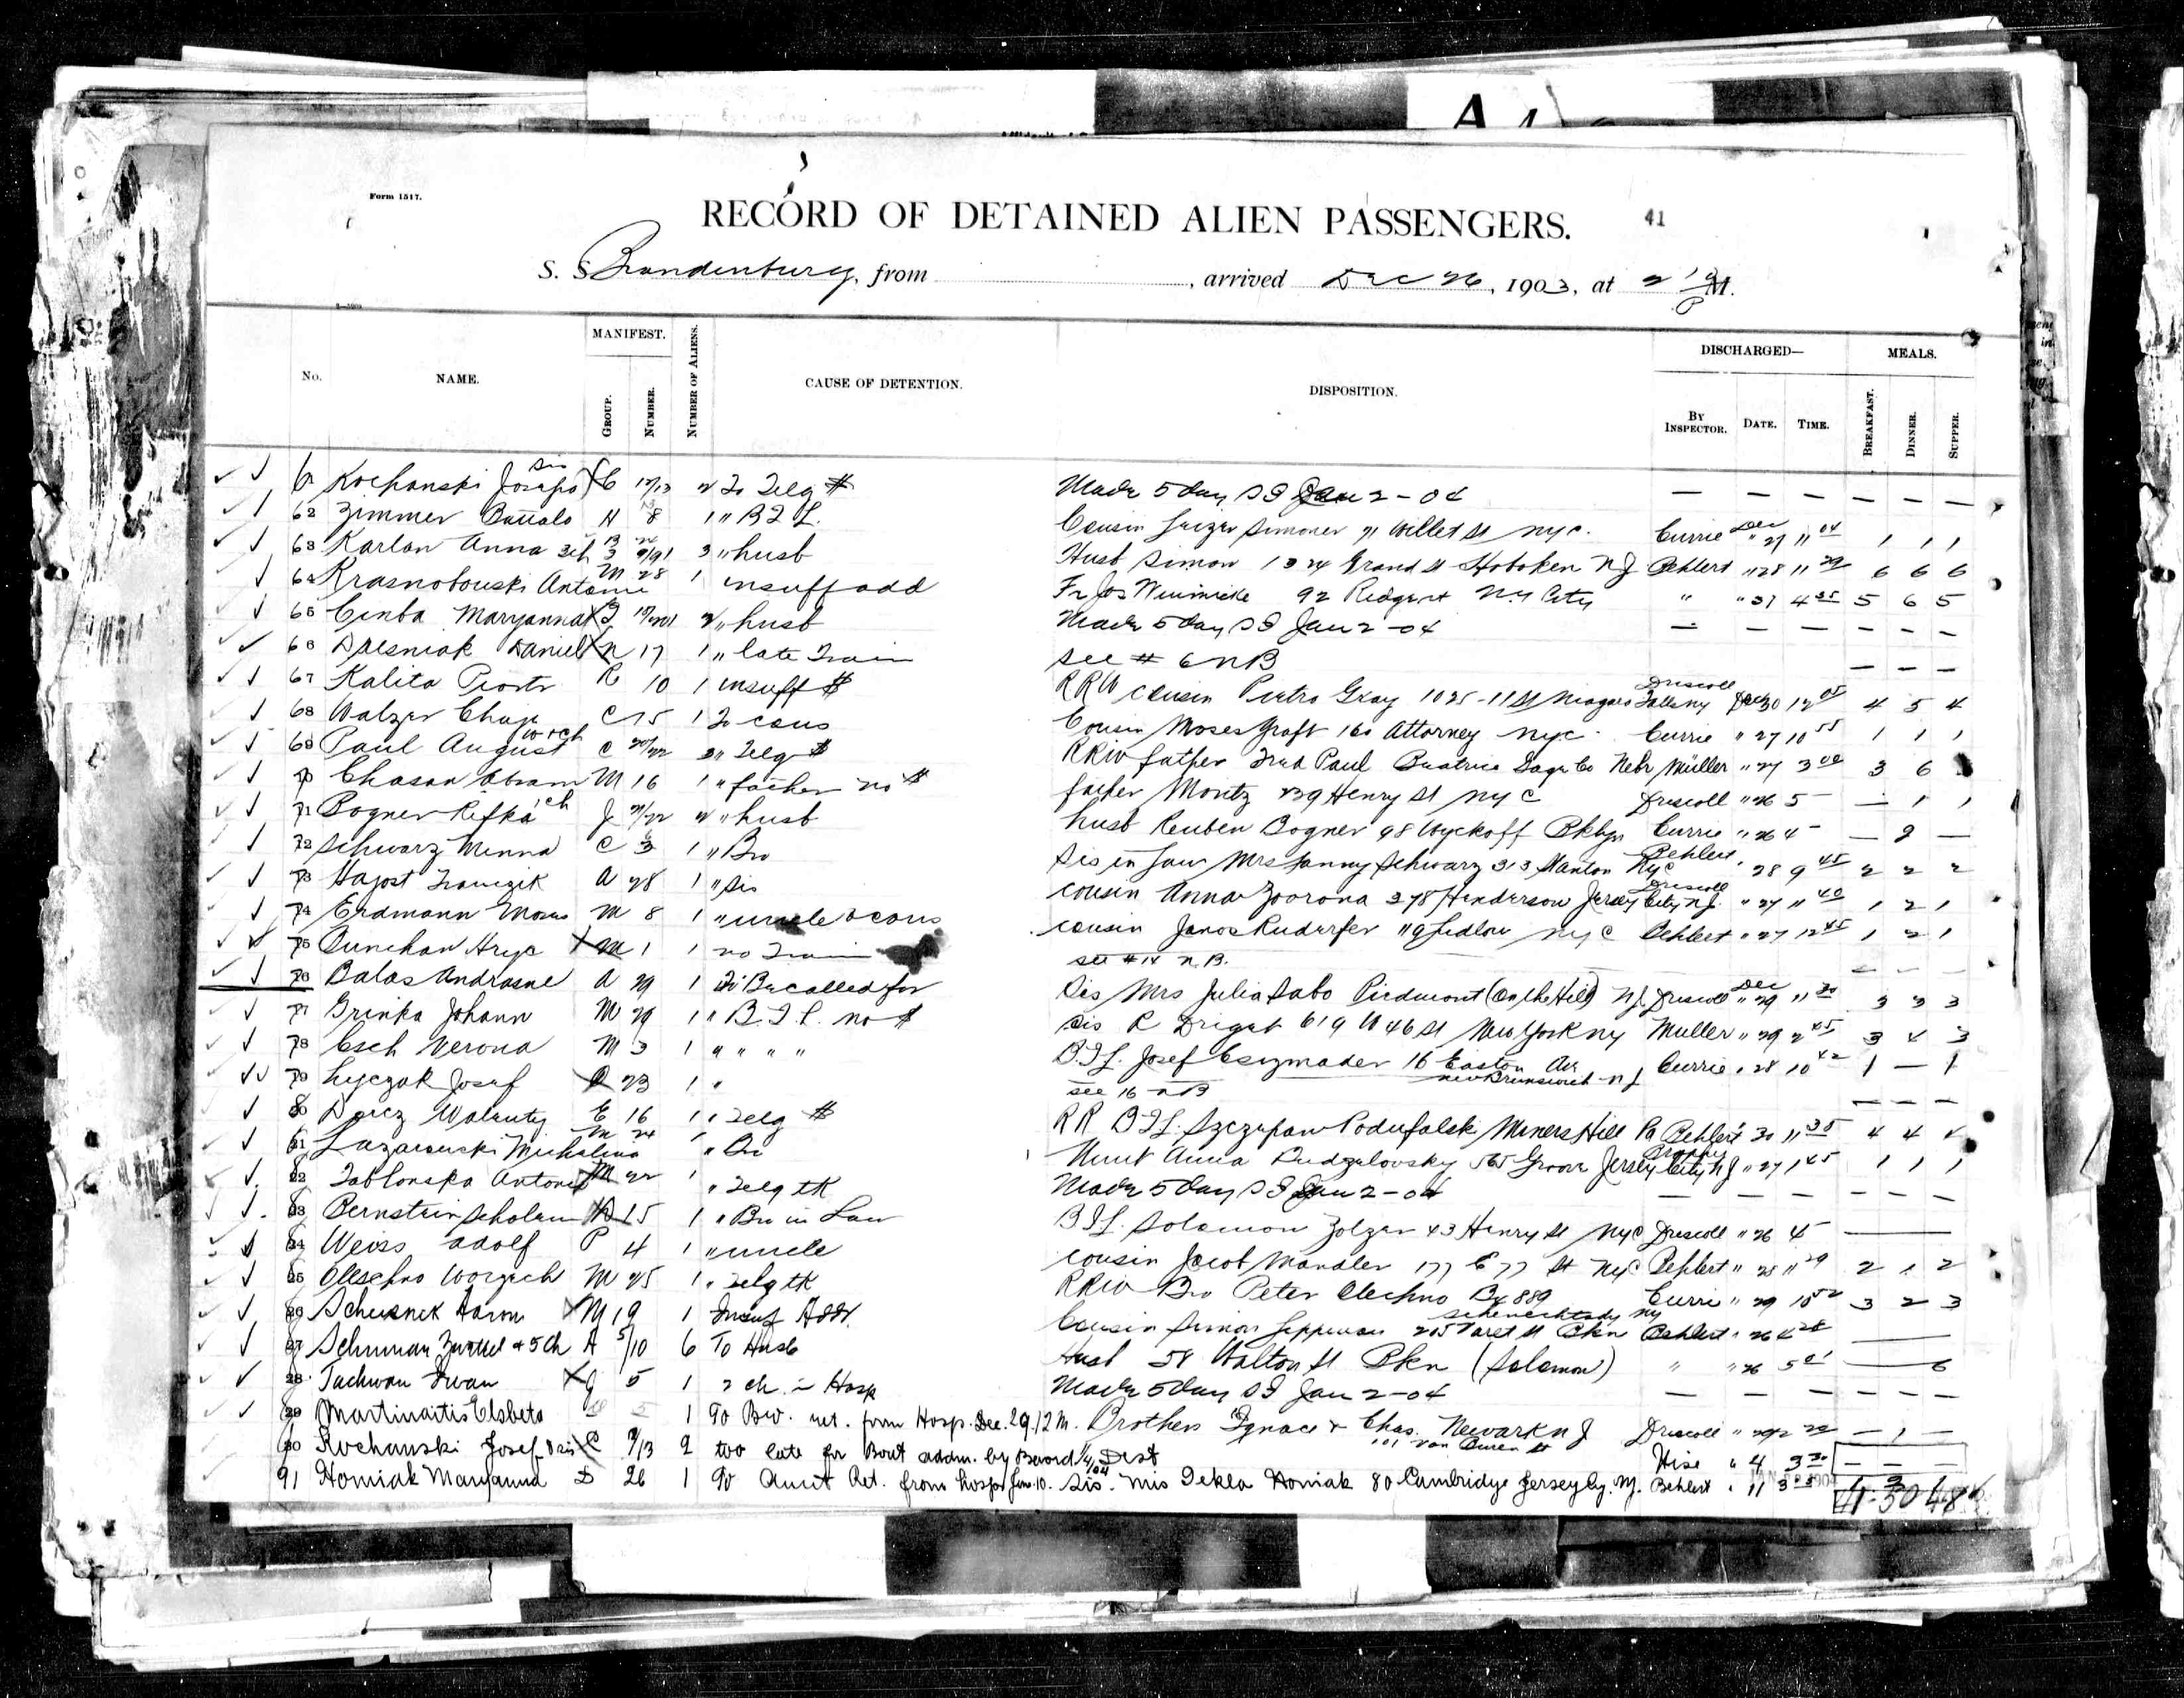 Form 1517.
RECORD OF DETAINED ALIEN PASSENGERS. 41
S. S. Brandenburg, from , arrived Dec 26, 1903, at 2 P M.
No. NAME. MANIFEST. GROUP. NUMBER. NUMBER OF ALIENS. CAUSE OF DETENTION. DISPOSITION. DISCHARGED— BY INSPECTOR. DATE. TIME. MEALS. BREAKFAST. DINNER. SUPPER.
Kochanski sis C 12/13 2 To Telg $ Made 5 day S I Jan 2-04 — — — — — —
62 Zimmer H 8 1 " B I L. Cousin Simoner 71 Willet St NYC. Currie Dec 27 11 04 1 1 1
63 Karlan Anna 3 " husb Husb Simon 1324 Grand St Hoboken N J Behlert " 28 11 29 6 6 6
64 Krasnobouski Antonie M 28 1 insuff add Fr Jos 92 Ridge St N.Y City " " 31 4 35 5 6 5
65 Cinba Maryanna 2 " husb Made 5 day S I Jan 2-04 — — — — — —
66 Dresniak Daniel N 17 1 " late Train See # 6 N B — — —
67 Kalita Piotr R 10 1 insuff $ R R W cousin Pietro Gray 1025-11 St Niagara Falls NY Driscoll Dec 30 12 05 4 5 4
68 Walzer Chaje C 15 1 To cous Cousin Moses Graft 160 Attorney NYC. Currie " 27 10 55 1 1 1
69 Paul August w + ch C 20/22 3 " Telg $ R R W father Fred Paul Beatrice Gage Co Nebr Müller " 27 3 00 3 6
70 Chasan Abram M 16 1 " father no $ father Moritz 239 Henry St NYC Driscoll " 26 5 — — 1 1
71 Bogner Rifka 1 ch J 21/22 2 " husb husb Reuben Bogner 98 Wyckoff Bklyn Currie " 26 4 — — 2 —
72 Schwarz Minna C 3 1 " Bro Sis in Law Mrs Fanny Schwarz 313 Stanton NYC Behlert 28 9 45 2 2 2
73 Hajost A 28 1 " sis cousin Anna Zoorona 378 Henderson Jersey City N.J. Driscoll " 27 11 40 1 2 1
74 Erdmann Moses M 8 1 " uncle & cous cousin Janos Rudurfer 119 Ludlow NYC Behlert " 27 12 45 1 2 1
75 M 1 1 no Train see # 14 N.B. — — —
76 Balas Andrasne A 29 1 To Be called for Sis Mrs Julia Sabo Piedmont (On the Hill) N.J. Driscoll Dec " 29 11 30 3 3 3
77 Grinka Johann M 29 1 " B.I.L. no $ Sis R Drigat 619 W 46 St New York NY Muller " 29 2 45 3 4 3
78 Esch Verona M 3 1 " " " " B.I.L. Josef Esizmader 16 Easton Ave New Brunswick N J Currie " 28 10 42 1 — 1
79 Lyczak Josef 23 1 " see 16 N B — — —
80 Darcz Walenty E 16 1 " Telg $ R R B I L. Podufalsk Miners Hill Pa Behlert " 30 11 35 4 4
81 Lazarauski Michalina M 24 " Aunt Anna Budzulovsky 565 Grove Jersey City N J Brophy " 27 1 45 1 1 1
82 Jablonska Antonie M 22 1 " Telg tk Made 5 day S I Jan 2-04 — — — — — —
83 Bernstein Scholem 15 1 " Bro in Law B I L. Solomon Zolzer 43 Henry St NYC Driscoll " 26 4 —
84 Weiss Adolf P 4 1 " uncle cousin Jacob Mandler 177 E 77 St NYC Behlert " 28 11 29 2 1 2
85 Olechno M 25 1 " Telg tk R R W Bro Peter Olechno Bx 889 Schenectady NY Currie " 29 10 52 3 2 3
86 Scheisnek Aaron M 19 1 Insuf Addr. Cousin Simon 205 St Bkn Behlert " 26 4 28
87 Schuman + 5 ch A 5/10 6 To Husb Husb 58 Walton St Bkn (Solomon) " " 26 5 01 6
88 Tachwan Iwan G 5 1 2 ch in Hosp Made 5 day S I Jan 2-04 — — — — — —
89 Martinaitis Elsbeta 1 To Bro. ret. from Hosp. Dec. 29. 12 M. Brothers Ignace & Chas. 101 Van Buren St Newark N J Driscoll " 29 — 1 —
90 Kochanski Josef + sis C 2 too late for Bout addm. by Board 1/4/04 Dest Wise " 4 3 30 — — —
91 Homiak Maryanna D 26 1 To Aunt Ret. from hosp Jan. 10. Sis. Mis Tekla Homiak 80 Cambridge Jersey Cy. N.J. Behlert " 11 3